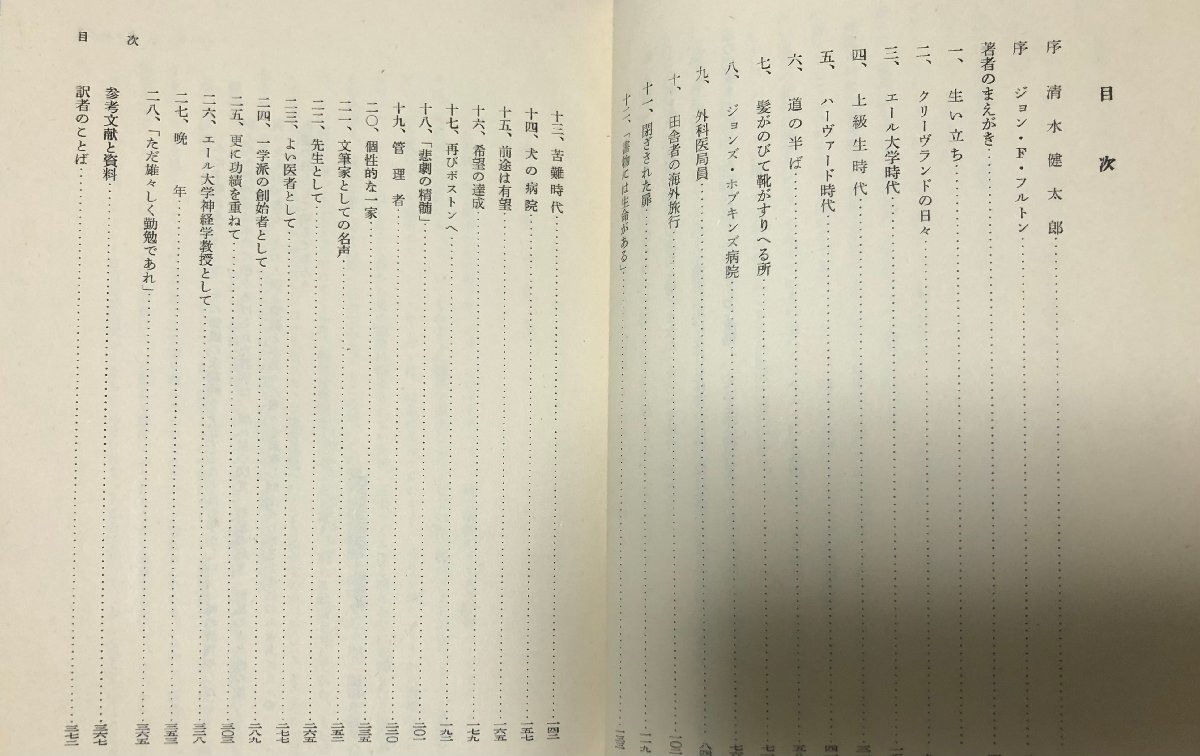 目次
序 清水健太郎
序 ジョン・F・フルトン
著者のまえがき
一、生い立ち
二、クリーヴランドの日々
三、エール大学時代
四、上級生時代
五、ハーヴァード時代
六、道の半ば
七、髪がのびて靴がすりへる所
八、ジョンズ・ホプキンズ病院
九、外科医局員 八四
十、田舎者の海外旅行 一〇二
十一、閉ざされた扉 一一九
十二、「書物には生命がある」
十三、苦難時代 一四二
十四、犬の病院 一五七
十五、前途は有望 一六五
十六、希望の達成 一七九
十七、再びボストンへ 一九二
十八、「悲劇の精髄」 二〇一
十九、管理者 二二〇
二〇、個性的な一家 二三三
二一、文筆家としての名声 二五二
二二、先生として 二六五
二三、よい医者として 二七七
二四、一学派の創始者として 二八九
二五、更に功績を重ねて 三〇三
二六、エール大学神経学教授として 三二八
二七、晩年 三五三
二八、「ただ雄々しく勤勉であれ」 三六五
参考文献と資料 三六七
訳者のことば 三七二
目次